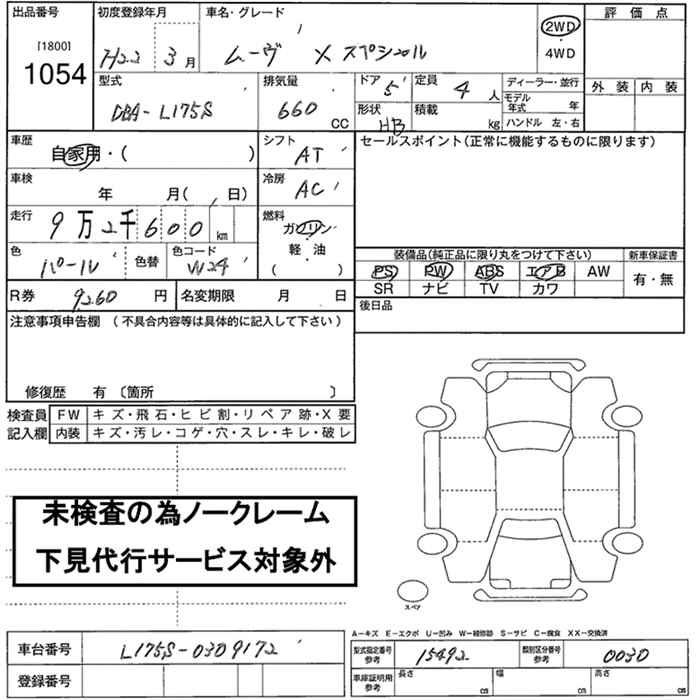 出品番号 [1800] 1054
初度登録年月 H22 3月
車名・グレード ムーヴ X スペシャル
2WD
4WD
評価点
外装 内装
型式 DBA-L175S
排気量 660 CC
ドア 5
形状 HB
定員 4 人
積載 kg
ディーラー・並行
モデル年式 年
ハンドル 左・右
車歴 自家用・( )
シフト AT
車検 年 月( 日)
冷房 AC
走行 9万2千600 km
燃料 ガソリン・軽・油 ( )
色 パール 色替
色コード W24
セールスポイント(正常に機能するものに限ります)
装備品(純正品に限り丸をつけて下さい)
PS PW ABS エアB AW
SR ナビ TV カワ
新車保証書
有・無
R券 9260 円
名変期限 月 日
後日品
注意事項申告欄 (不具合内容等は具体的に記入して下さい)
修復歴 有 〔箇所 〕
検査員記入欄
FW キズ・飛石・ヒビ割・リペア跡・X要
内装 キズ・汚レ・コゲ・穴・スレ・キレ・破レ
未検査の為ノークレーム
下見代行サービス対象外
スペア
A-キズ E-エクボ U-凹み W-補修跡 S-サビ C-腐食 XX-交換済
車台番号 L175S-0309172
登録番号
型式指定番号参考 15492
類別区分番号参考 0030
車庫証明用参考 長さ cm 幅 cm 高さ cm